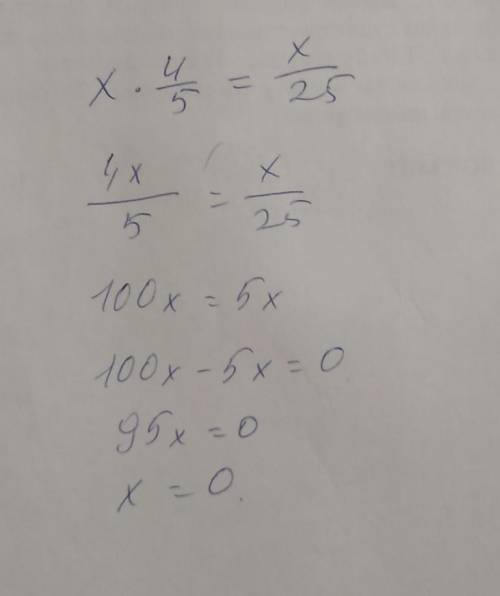 x · 4/5 = x/25
4x/5 = x/25
100x = 5x
100x - 5x = 0
95x = 0
x = 0.